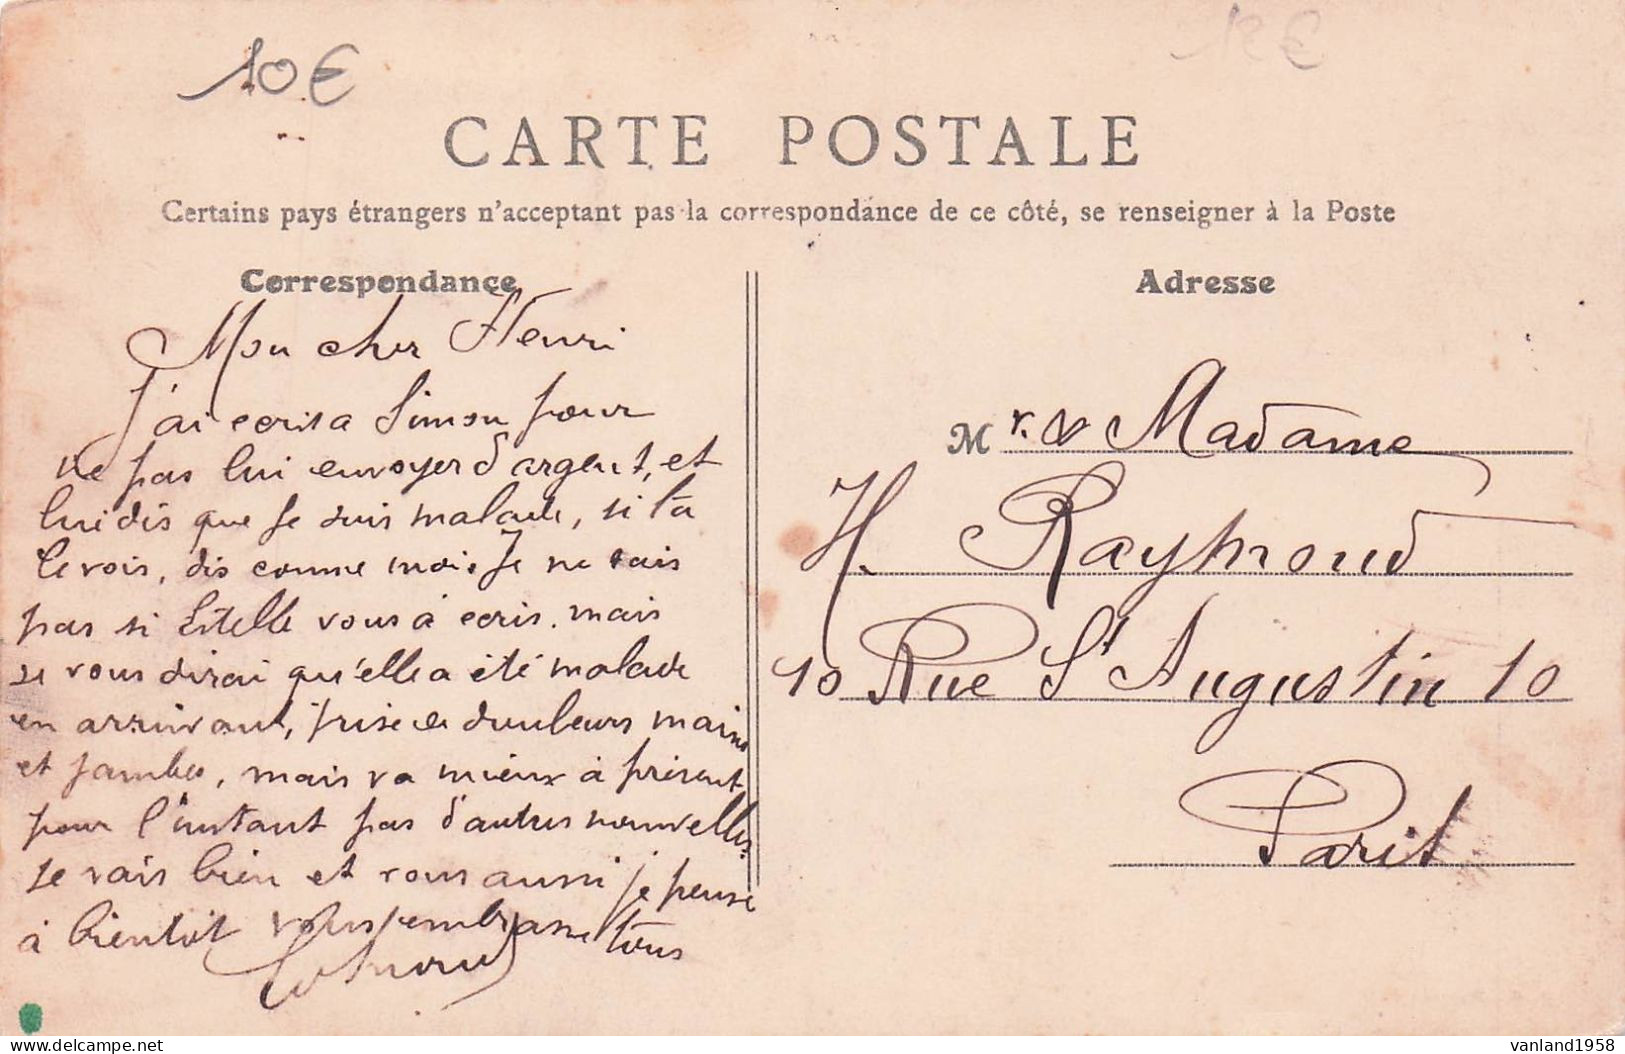 10€
12€
CARTE POSTALE
Certains pays étrangers n'acceptent pas la correspondance de ce côté, se renseigner à la Poste
Correspondance
Mon cher Henri
J'ai ecris a Simon pour
ne pas lui envoyer d'argent, et
lui dis que je suis malade, si tu
le vois, dis comme moi. Je ne sais
pas si Estelle vous à ecris. mais
je vous dirai qu'elle a été malade
en arrivant, prise de douleurs mains
et jambes, mais va mieux à présent
pour l'instant pas d'autres nouvelles.
Je vais bien et vous aussi je pense
à bientôt vous embrasse tous
Adresse
Mr. & Madame
H. Raymond
10 Rue St Augustin 10
Paris
vanland1958